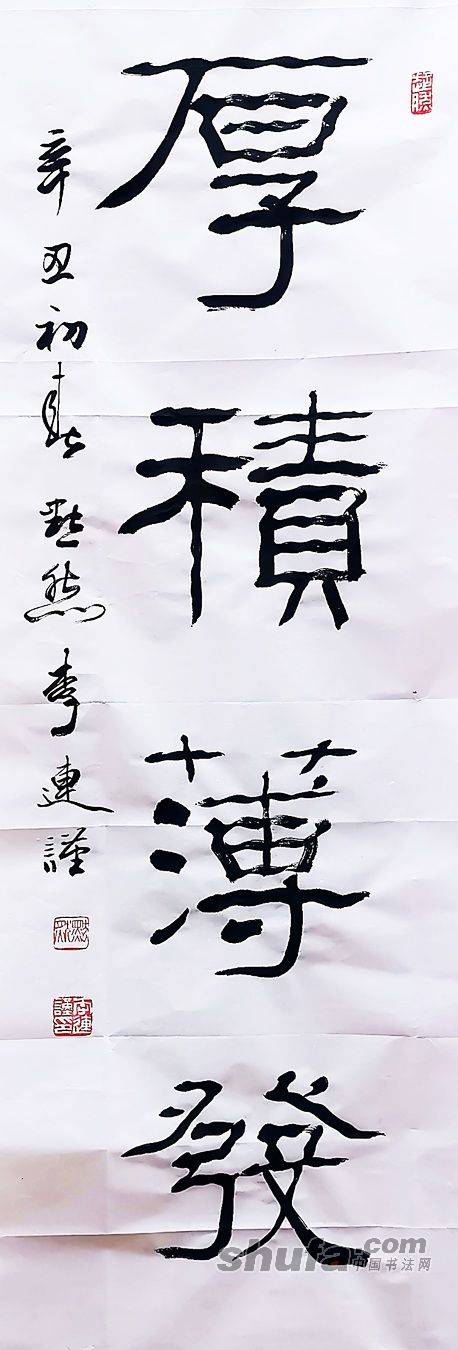 厚積薄發
辛丑初春 默然李連謹
shufa.com
中国书法网